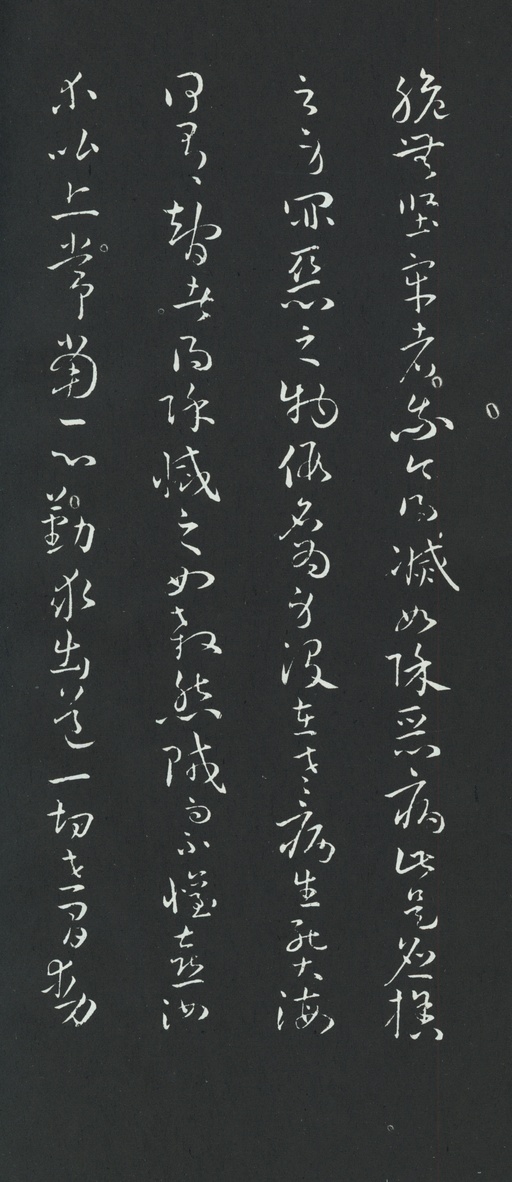 脆無堅牢者我今得滅如除惡病此是應捨
之身罪惡之物假名為身没在老病生死大海
何有智者得除滅之如殺怨賊而不懽喜汝
等比丘常當一心勤求出道一切世間動